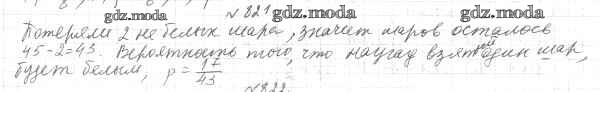 № 821 gdz.moda gdz.moda
Потеряли 2 не белых шара, значит шаров осталось
45-2=43. Вероятность того, что наугад взятый один шар,
будет белым, p = 17/43
№ 822
gdz.moda gdz.moda